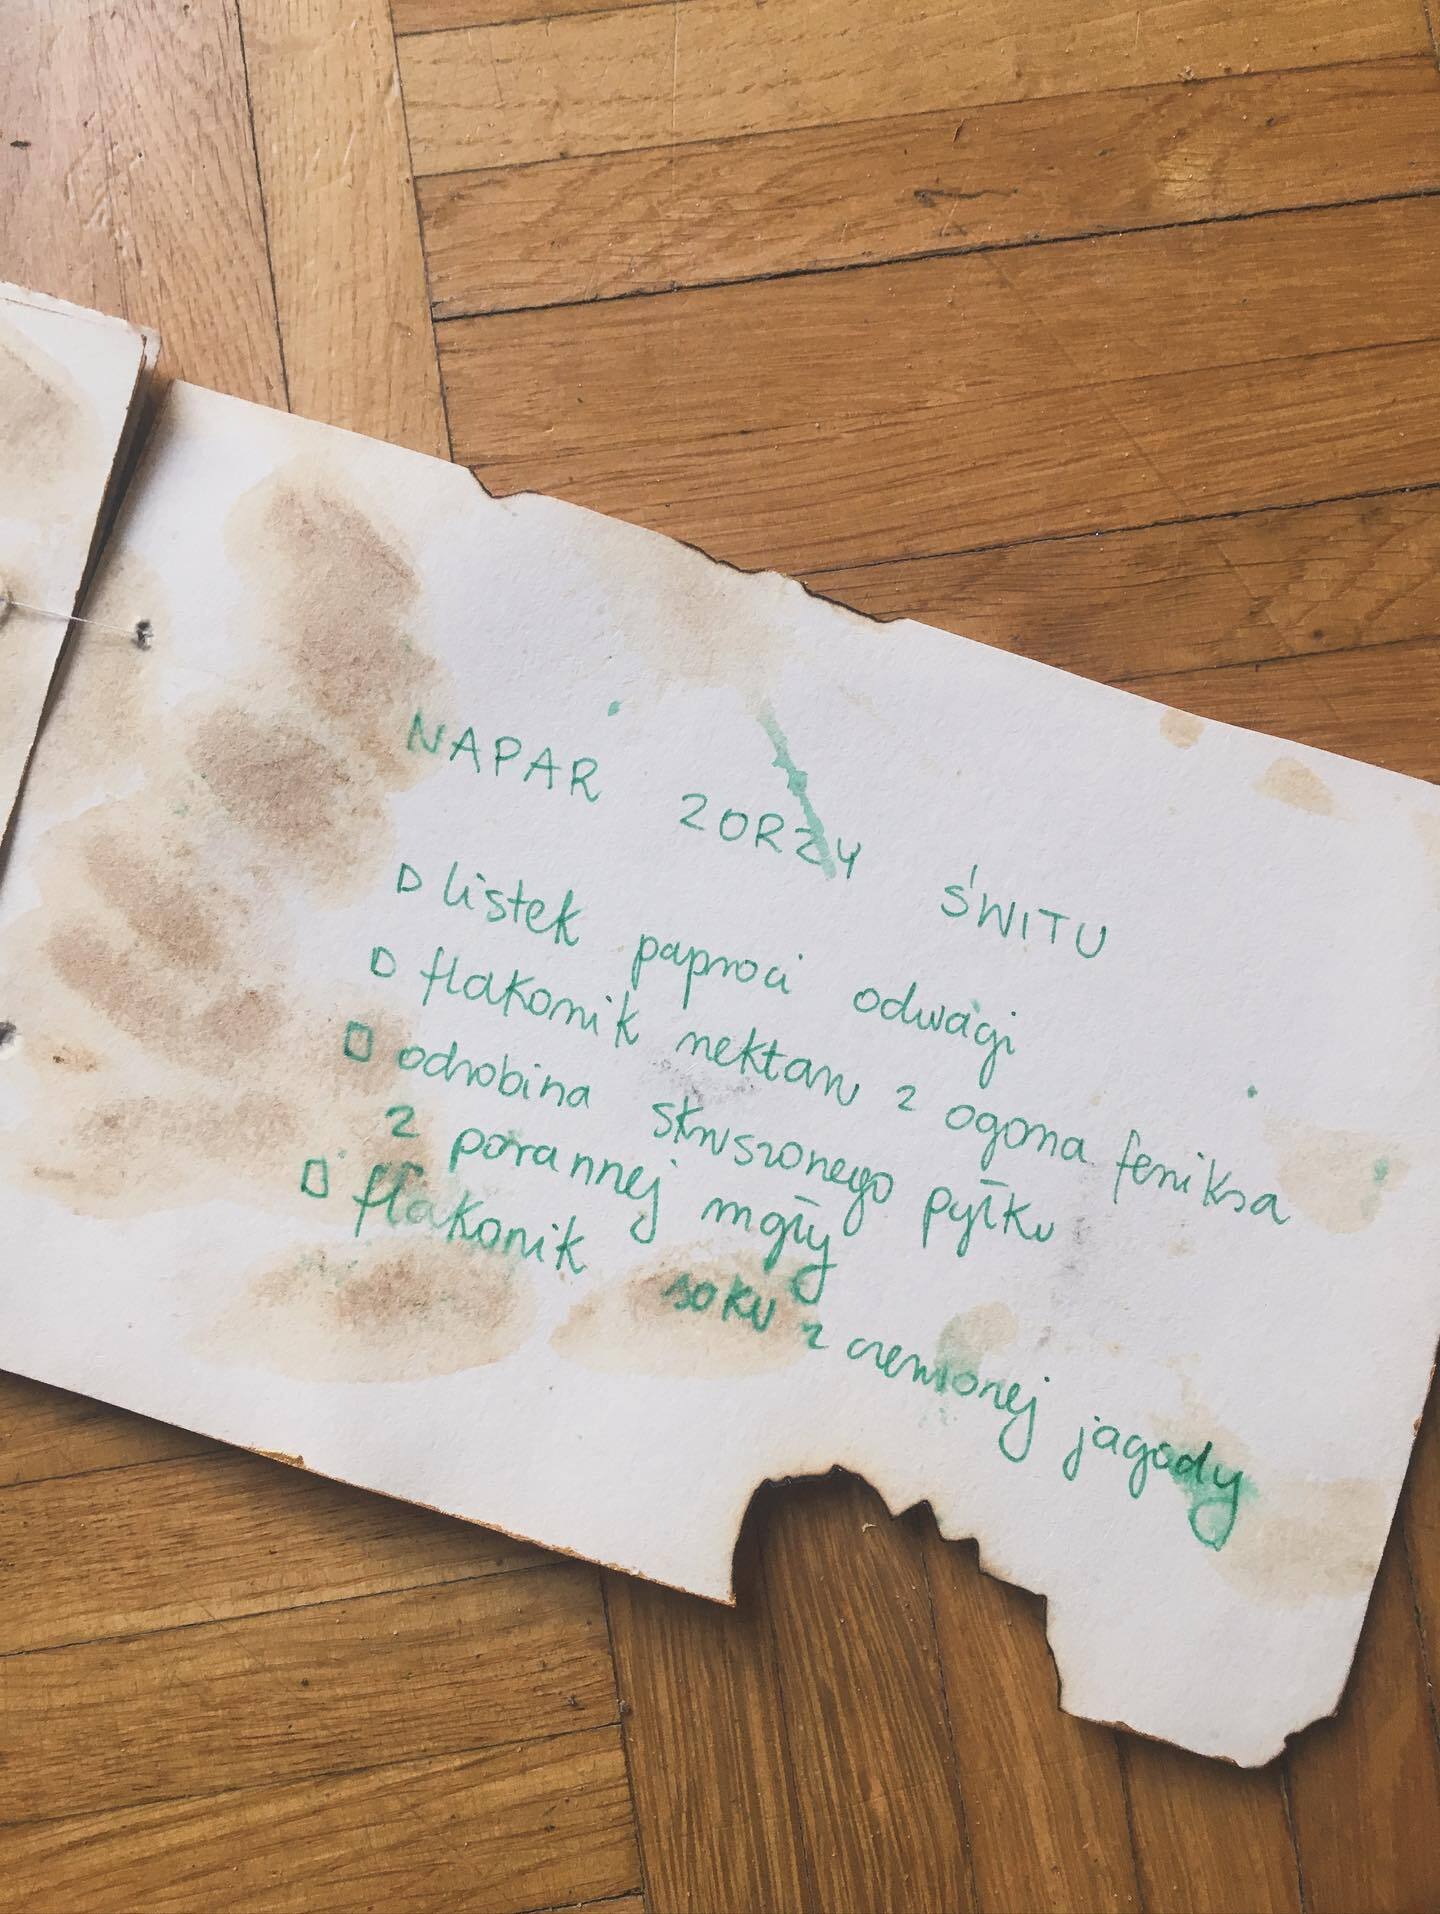 NAPAR ZORZY ŚWITU
listek paproci odwagi
flakonik nektaru z ogona feniksa
odrobina skruszonego pyłku
z porannej mgły
flakonik soku z czerwonej jagody